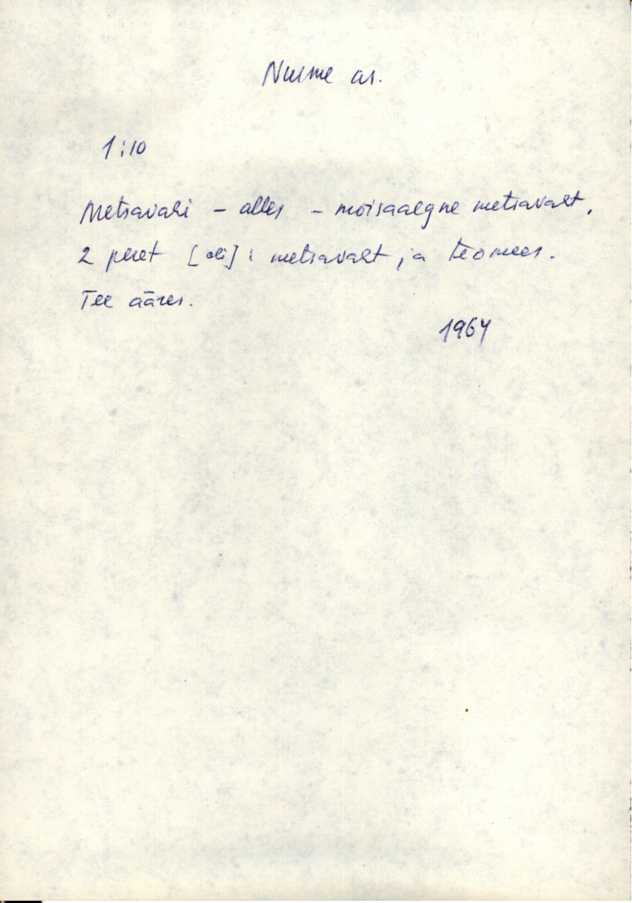 Nurme as.
1:10
Metsavahi - alles - moisaaegne metsavaht,
2 peret [oli]: metsavaht ja teomees.
Tee ääres.
1964